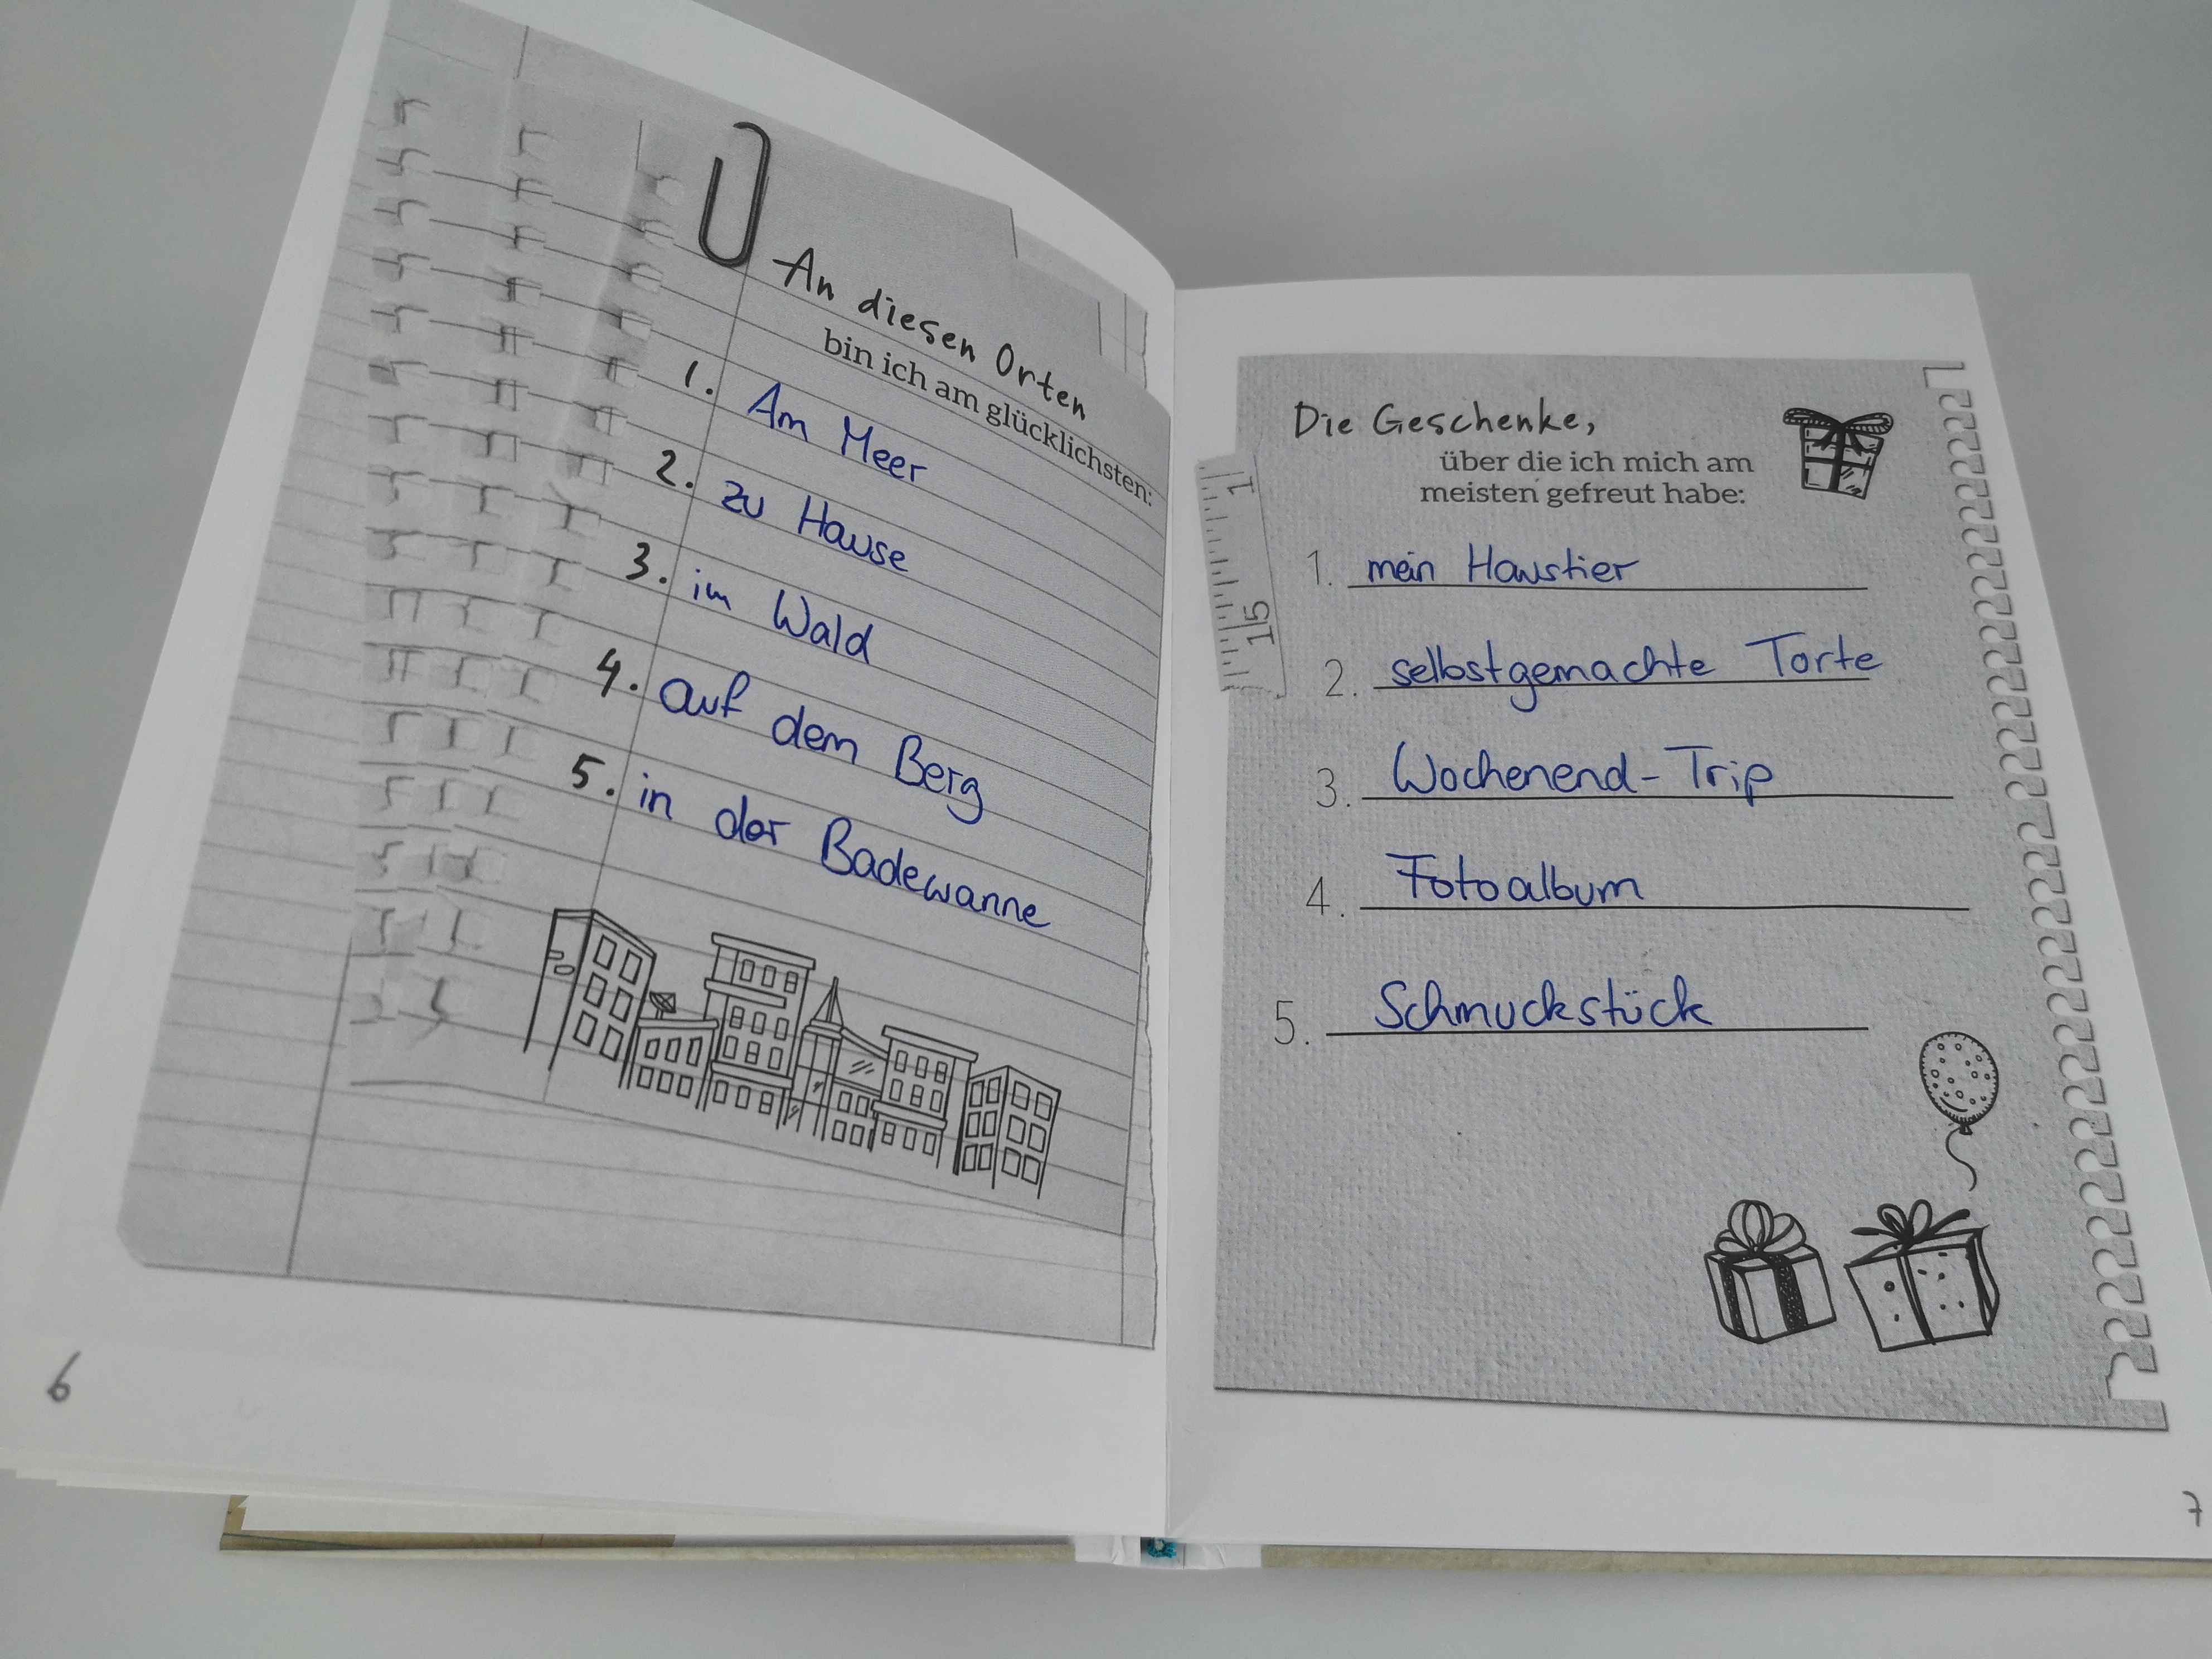 An diesen Orten
bin ich am glücklichsten:
1. Am Meer
2. zu Hause
3. im Wald
4. auf dem Berg
5. in der Badewanne
6
Die Geschenke,
über die ich mich am
meisten gefreut habe:
1
15
1. mein Haustier
2. selbstgemachte Torte
3. Wochenend-Trip
4. Fotoalbum
5. Schmuckstück
7